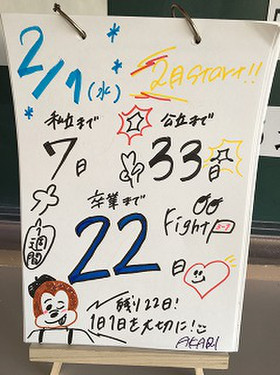 2/1(水)
2月START!!
私立まで
公立まで
7日
33日
卒業まで
1週間
22日
Fight
3-7
残り22日!
1日1日を大切に!
AKARI